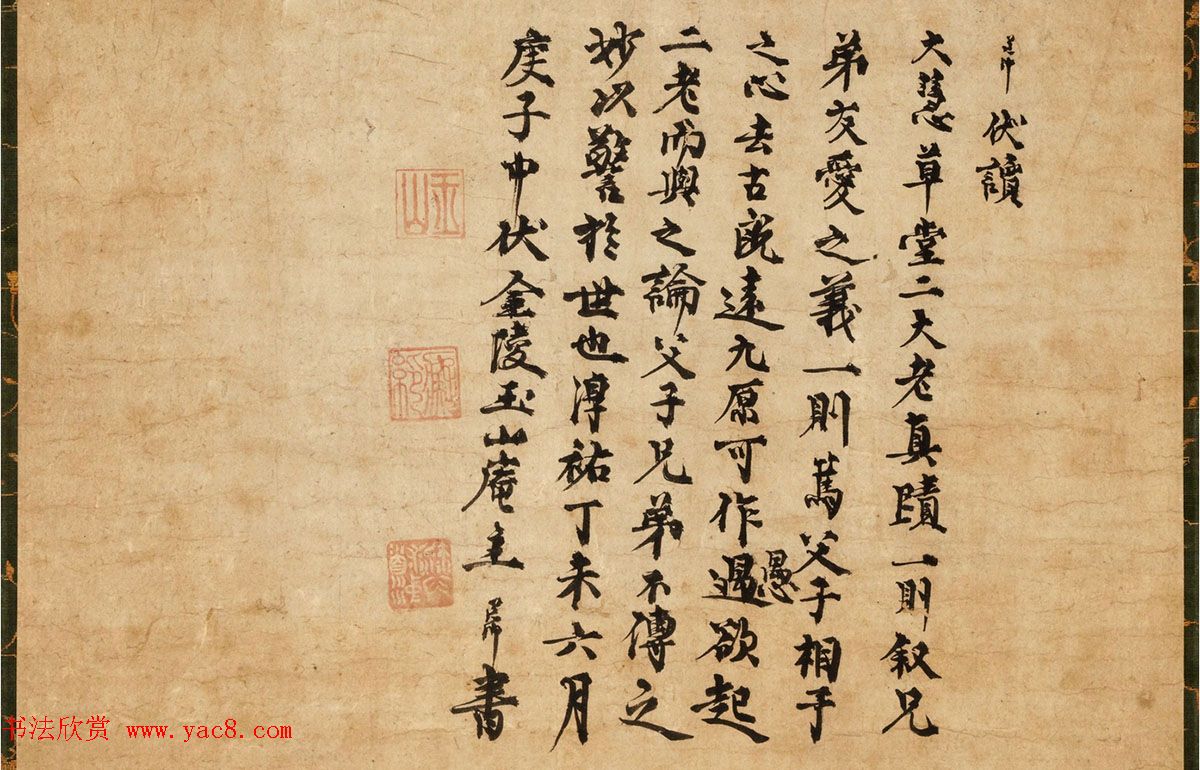 伏讀
大慧草堂二大老真蹟一則叙兄
弟友愛之義一則篤父子相于
之心去古既遠九原可作愚欲起
二老而與之論父子兄弟不傳之
妙以警於世也淳祐丁未六月
庚子中伏金陵玉山庵主書
玉山
书法欣赏 www.yac8.com